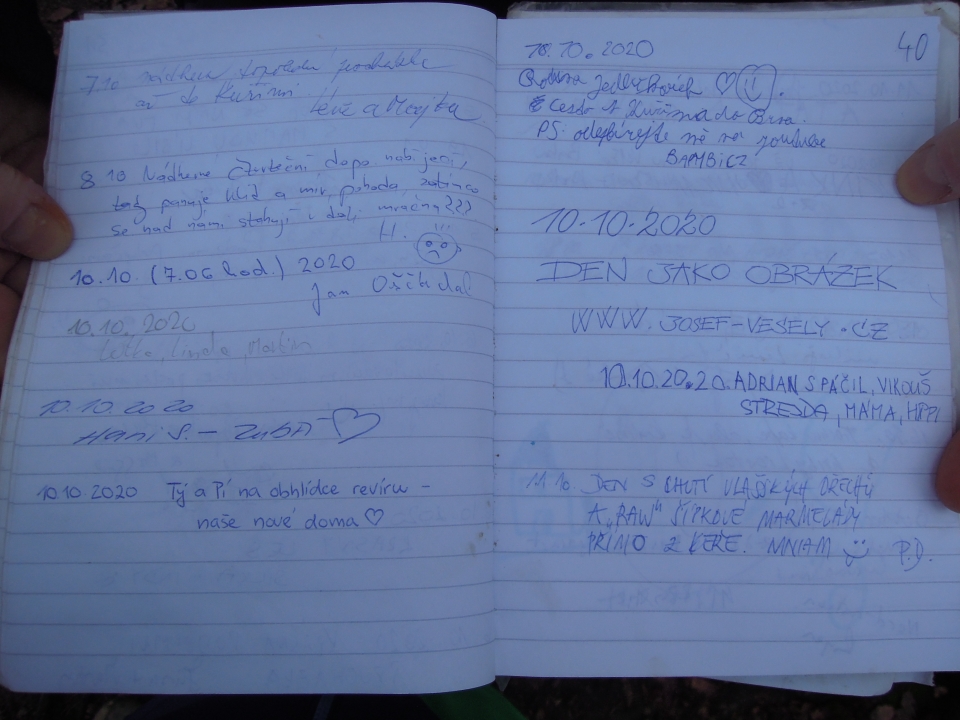 7.10 nádherná toulka
až do Kuřimi
8.10 Nádherné čtvrteční dopo. nabíjení,
tady panuje klid a mír, pohoda, zatímco
se nad námi stahují i další mračna???
H.
10.10. (7.06 hod.) 2020
Jan
10.10.2020
Linda, Martin
10.10.2020
Hani S. –
10.10.2020 Tý a Pí na obhlídce revíru –
naše nové doma ♡
40
10.10.2020
Rodina ♡
Cesta z Kuřima do Brna.
PS: odebírejte mě na youtube
BAMBICZ
10.10.2020
DEN JAKO OBRÁZEK
WWW.JOSEF-VESELY.CZ
10.10.2020. ADRIAN SPÁČIL, VIKOUŠ
STREJDA, MÁMA,
11.10. DEN S CHUTÍ VLAŠSKÝCH OŘECHŮ
A „RAW" ŠÍPKOVÉ MARMELÁDY
PŘÍMO Z KEŘE. MNIAM P.D.